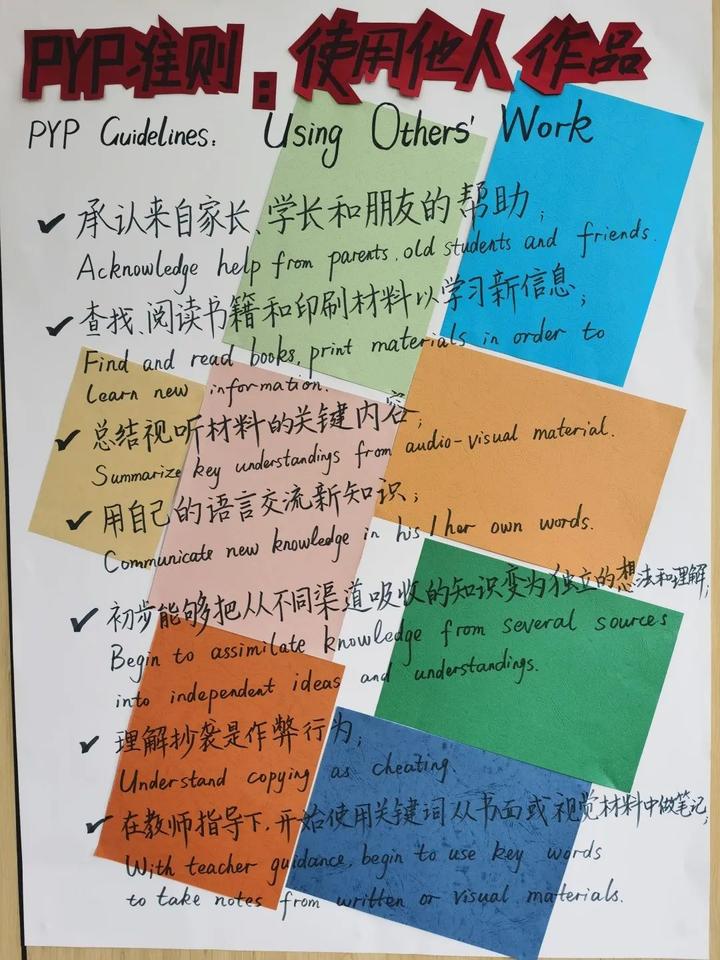 PYP准则:使用他人作品
PYP Guidelines: Using Others' Work
✔ 承认来自家长、学长和朋友的帮助;
Acknowledge help from parents, old students and friends.
✔ 查找、阅读书籍和印刷材料以学习新信息;
Find and read books, print materials in order to
learn new information.
✔ 总结视听材料的关键内容;
Summarize key understandings from audio-visual material.
✔ 用自己的语言交流新知识;
Communicate new knowledge in his/her own words.
✔ 初步能够把从不同渠道吸收的知识变为独立的想法和理解;
Begin to assimilate knowledge from several sources
into independent ideas and understandings.
✔ 理解抄袭是作弊行为;
Understand copying as cheating.
✔ 在教师指导下,开始使用关键词从书面或视觉材料中做笔记;
With teacher guidance, begin to use key words
to take notes from written or visual materials.